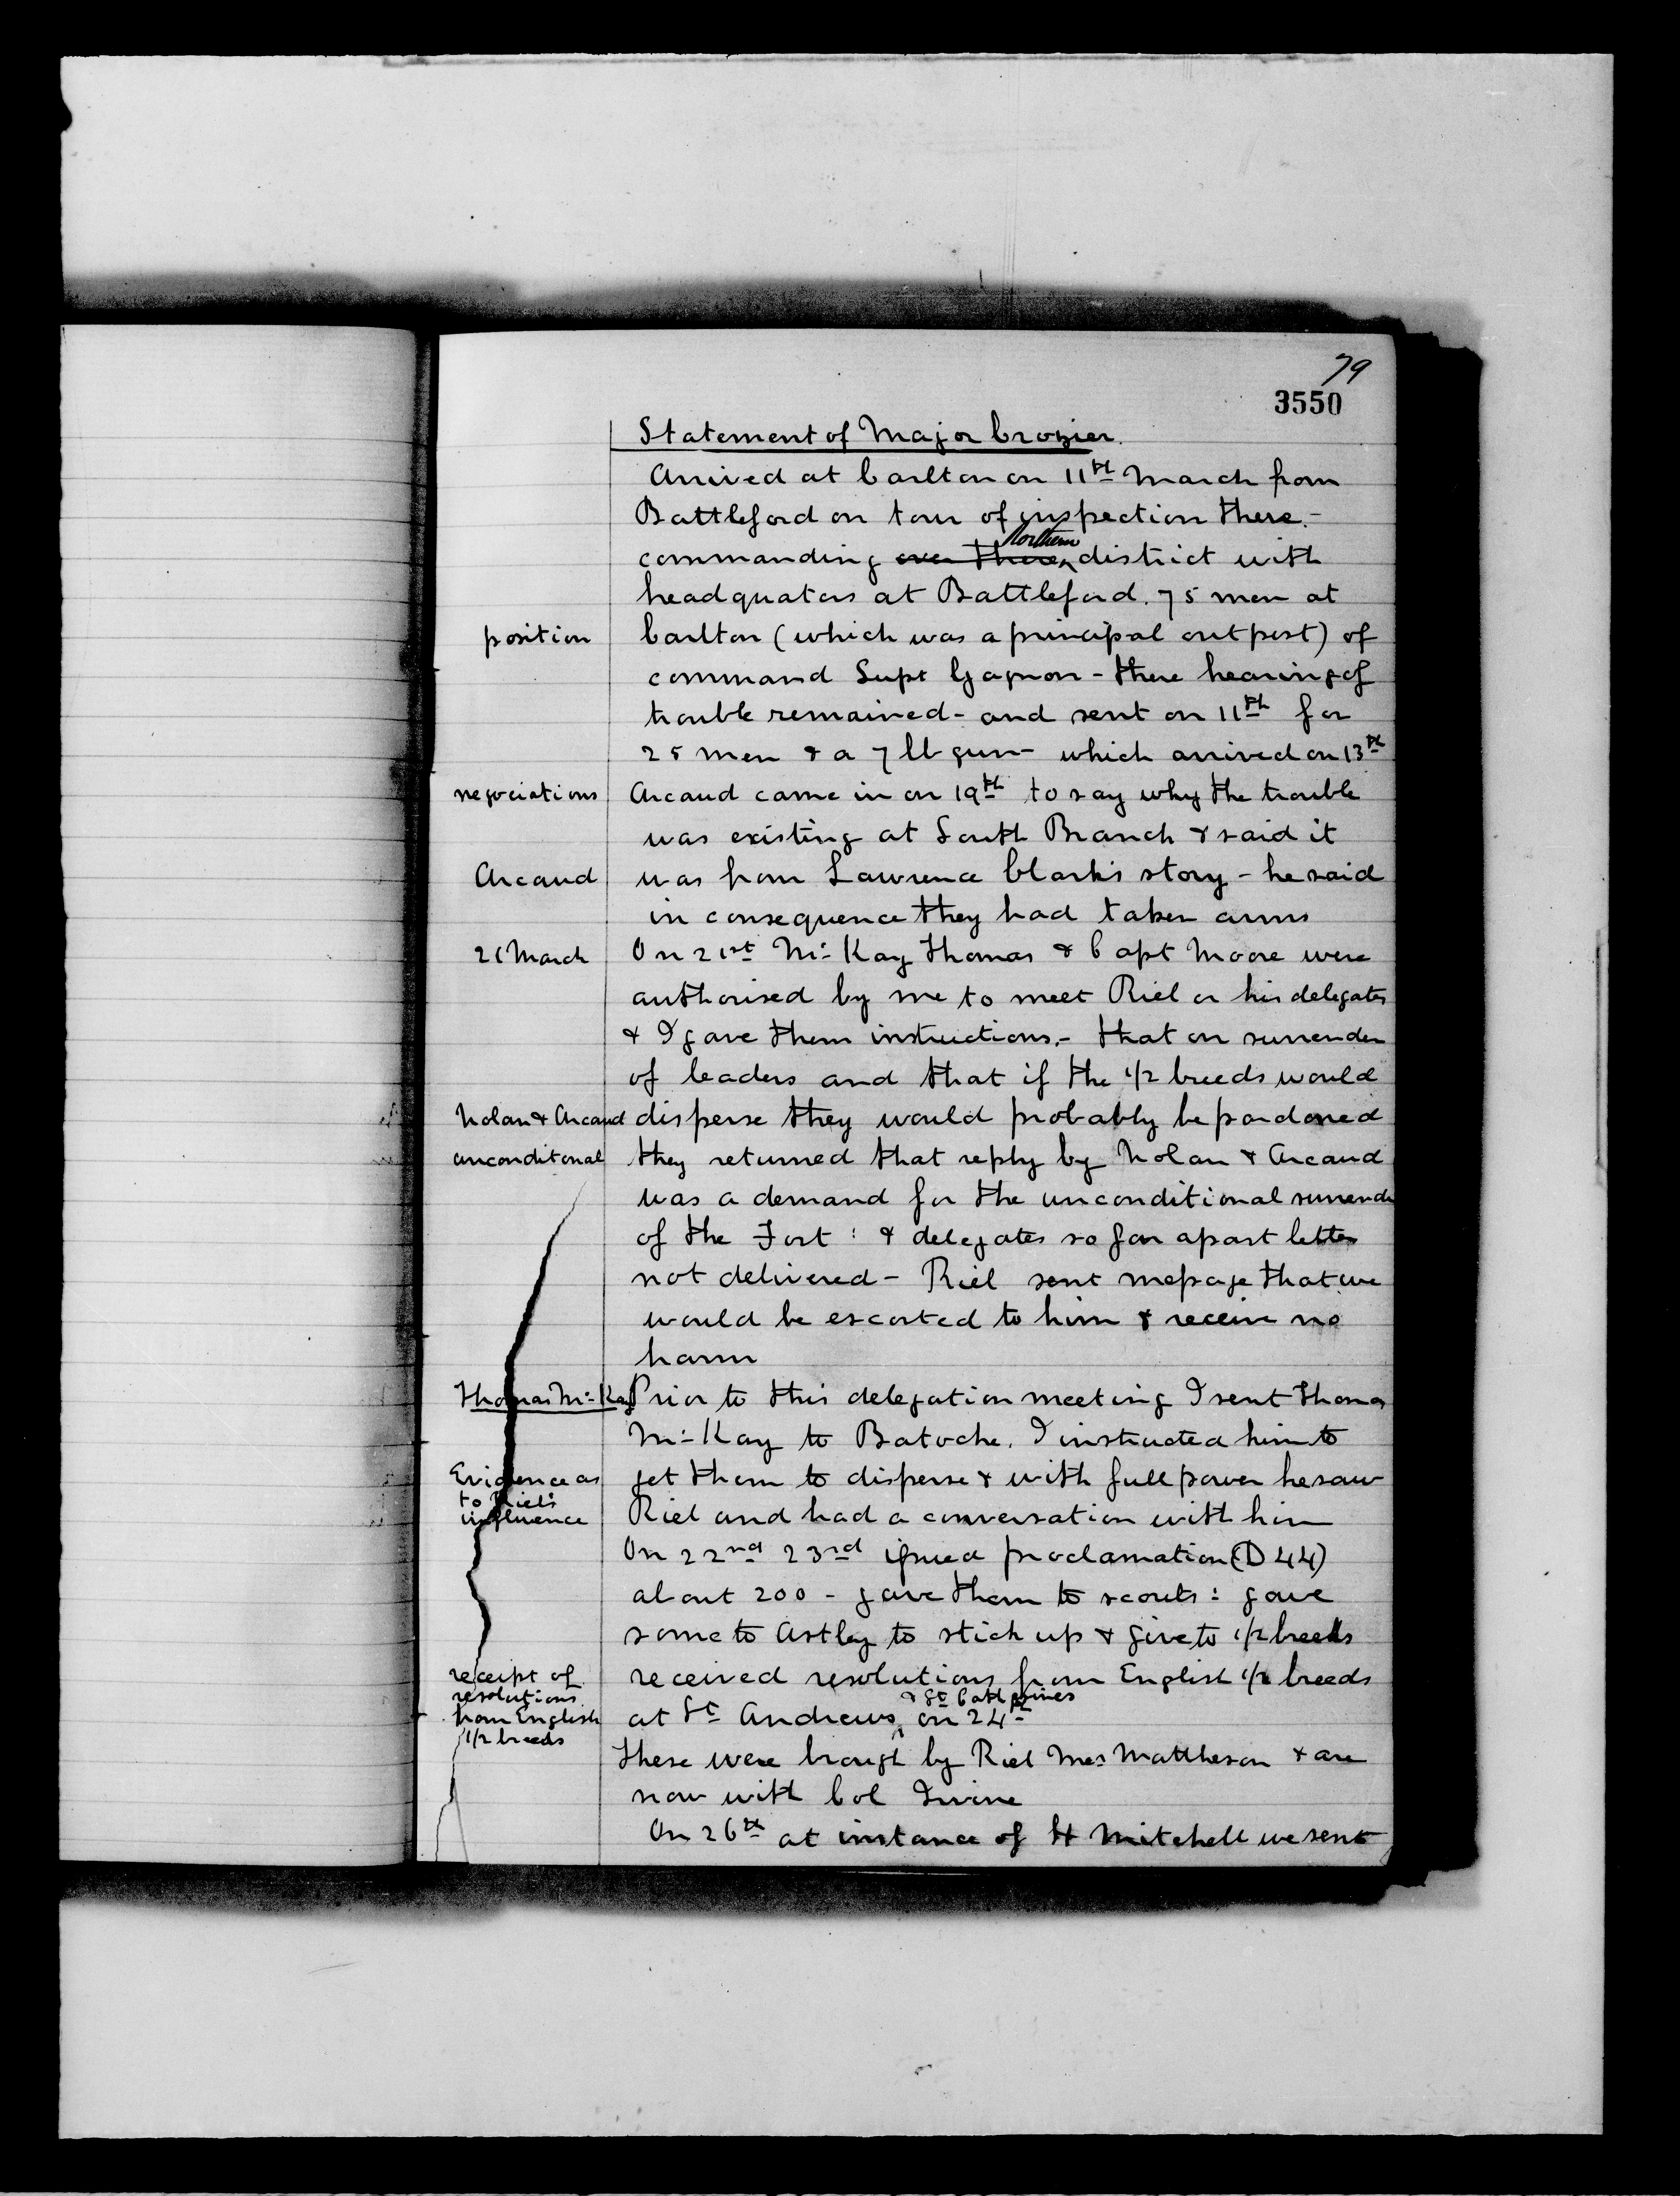 79
3550
Statement of Major Crozier.
Arrived at Carlton on 11th March from
Battleford on tour of inspection there.-
commanding over there Northern district with
headquaters at Battleford. 75 men at
position Carlton (which was a principal outpost) of
command Supt Gagnon - there hearing of
trouble remained - and sent on 11th for
25 men & a 7 lb gun - which arrived on 13th
negociations Arcaud came in on 19th to say why the trouble
was existing at South Branch & said it
Arcaud was from Lawrence Clark's story - he said
in consequence they had taken arms
21 March On 21st Mc Kay Thomas & Capt Moore were
authorised by me to meet Riel or his delegates
& I gave them instructions.- that on surrender
of leaders and that if the 1/2 breeds would
Nolan & Arcaud disperse they would probably be pardoned
unconditonal they returned that reply by Nolan & Arcaud
was a demand for the unconditional surrender
of the Fort : & delegates so far apart letter
not delivered - Riel sent message that we
would be escorted to him & receive no
harm
Thomas Mc Kay Prior to this delegation meeting I sent Thomas
Mc Kay to Batoche. I instructed him to
Evidence as get them to disperse & with full power he saw
to Riel's
influence Riel and had a conversation with him
On 22nd 23rd issued proclamation (D 44)
about 200 - gave them to scouts : gave
some to Astley to stick up & give to 1/2 breeds
receipt of received resolutions from English 1/2 breeds
resolutions & St Catherines
from English at St Andrews on 24th
1/2 breeds
These were brought by Riel Mes Mattheson & are
now with Col Irvine
On 26th at instance of H Mitchell we sent